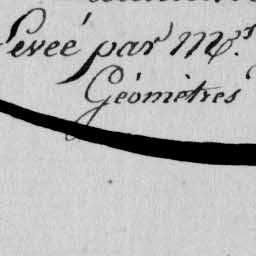 Levée par Mrs
Géomètres